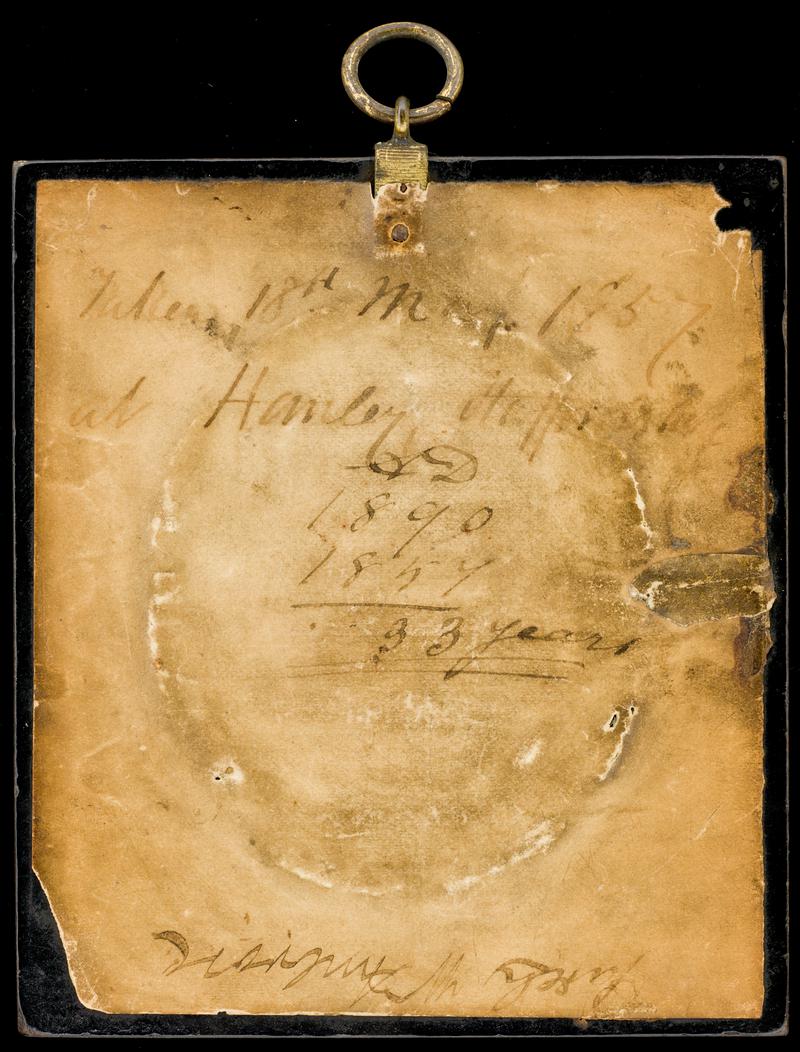 Taken 18th May 1857
at Hanley Staffordsh
AD
1890
1857
33 years